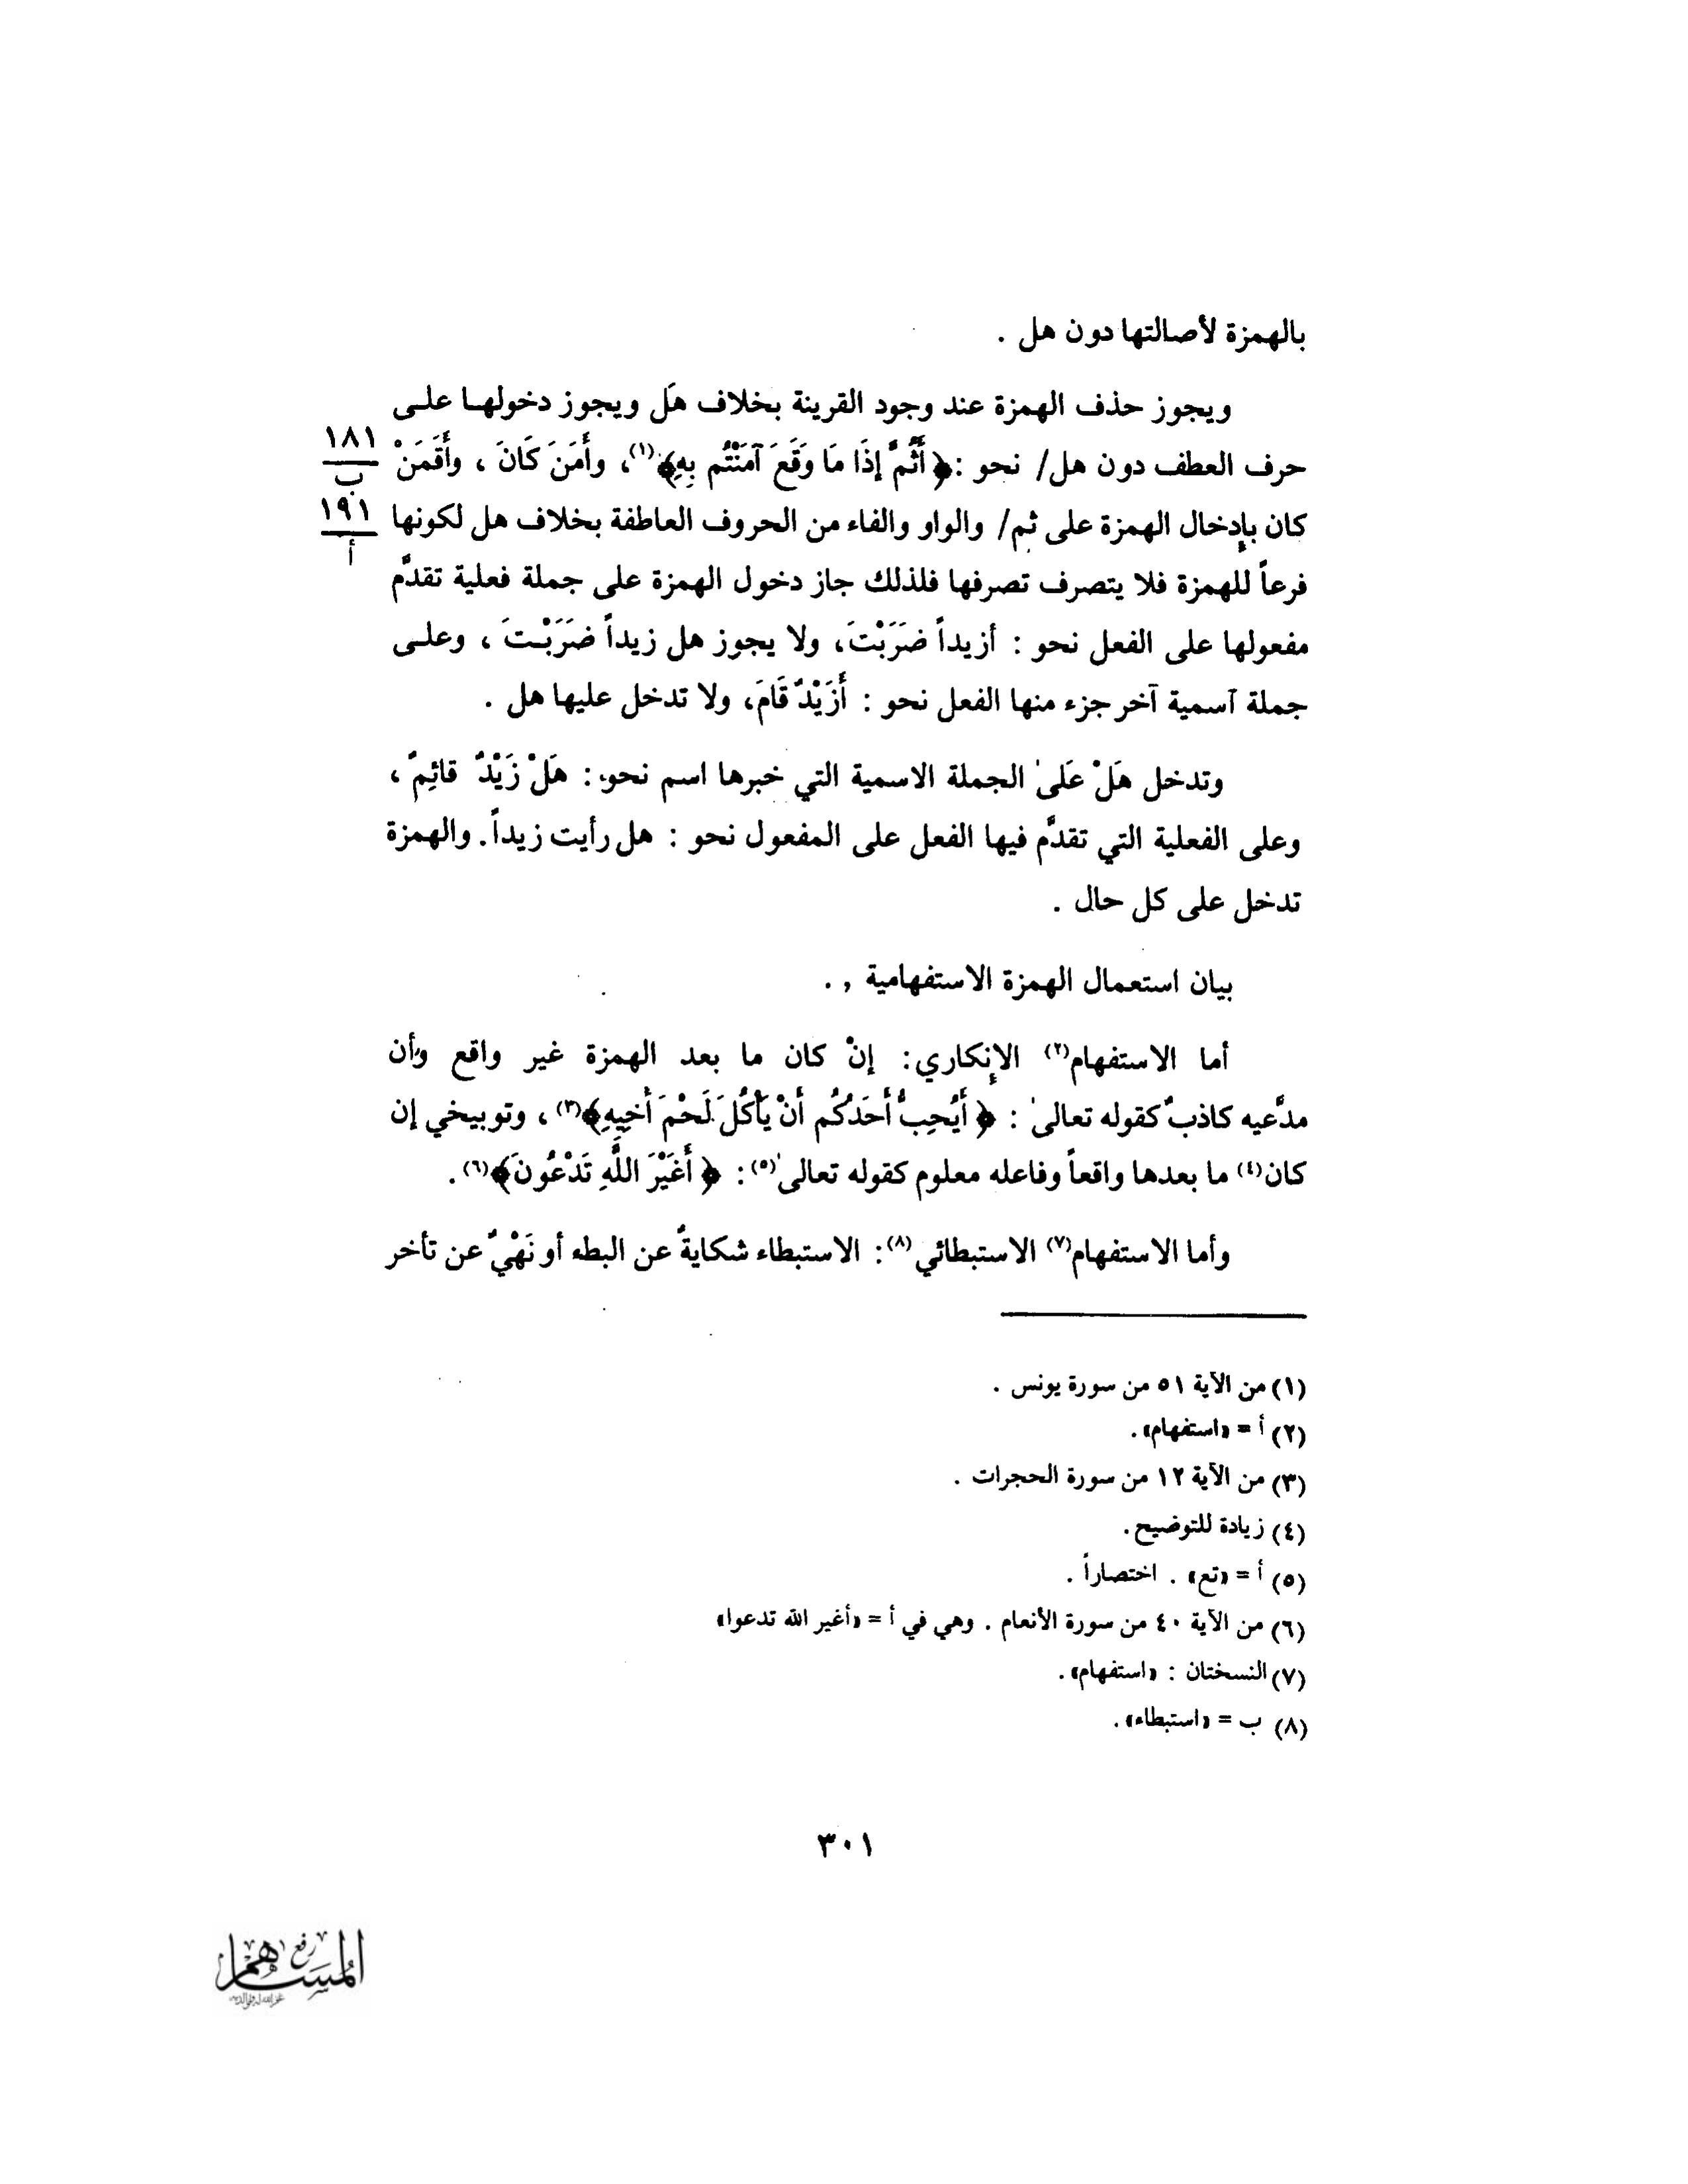 بالهمزة لأصالتها دون هل .
ويجوز حذف الهمزة عند وجود القرينة بخلاف هَل ويجوز دخولهـا علـى
حرف العطف دون هل/ نحو :﴿ أَثُمَّ إِذَا مَا وَقَعَ آمَنْتُم بِهِ﴾(١)، وأَمَنَ كَانَ ، وأَقَمَنْ
١٨١
ب
كان بإدخال الهمزة على ثم/ والواو والفاء من الحروف العاطفة بخلاف هل لكونها
١٩١
أ
فرعاً للهمزة فلا يتصرف تصرفها فلذلك جاز دخول الهمزة على جملة فعلية تقدَّم
مفعولها على الفعل نحو : أزيداً ضَرَبْتَ، ولا يجوز هل زيداً ضَرَبْـتَ ، وعلـى
جملة آسمية آخر جزء منها الفعل نحو : أَزَيْدٌ قَامَ، ولا تدخل عليها هل .
وتدخل هَلْ عَلىٰ الجملة الاسمية التي خبرها اسم نحو : هَلْ زَيْدٌ قائِمٌ ،
وعلى الفعلية التي تقدَّم فيها الفعل على المفعول نحو : هل رأيت زيداً. والهمزة
تدخل على كل حال .
بيان استعمال الهمزة الاستفهامية , .
أما الاستفهام(٢) الإنكاري: إنْ كان ما بعد الهمزة غير واقع وأن
مدَّعيه كاذبٌ كقوله تعالىٰ : ﴿ أَيُحِبُّ أَحَدُكُم أَنْ يَأْكُلَ لَحْمَ أَخِيهِ﴾(٣) ، وتوبيخي إن
كان(٤) ما بعدها واقعاً وفاعله معلوم كقوله تعالىٰ(٥): ﴿ أَغَيْرَ اللَّهِ تَدْعُونَ﴾(٦).
وأما الاستفهام(٧) الاستبطائي(٨): الاستبطاء شكايةٌ عن البطء أو نَهْيٌ عن تأخر
(١) من الآية ٥١ من سورة يونس .
(٢) أ = «استفهام».
(٣) من الآية ١٢ من سورة الحجرات .
(٤) زيادة للتوضيح.
(٥) أ = «تع» . اختصاراً .
(٦) من الآية ٤٠ من سورة الأنعام . وهي في أ = «أغير الله تدعوا»
(٧) النسختان : «استفهام».
(٨) ب = «استبطاء».
٣٠١
رفع
المساهم